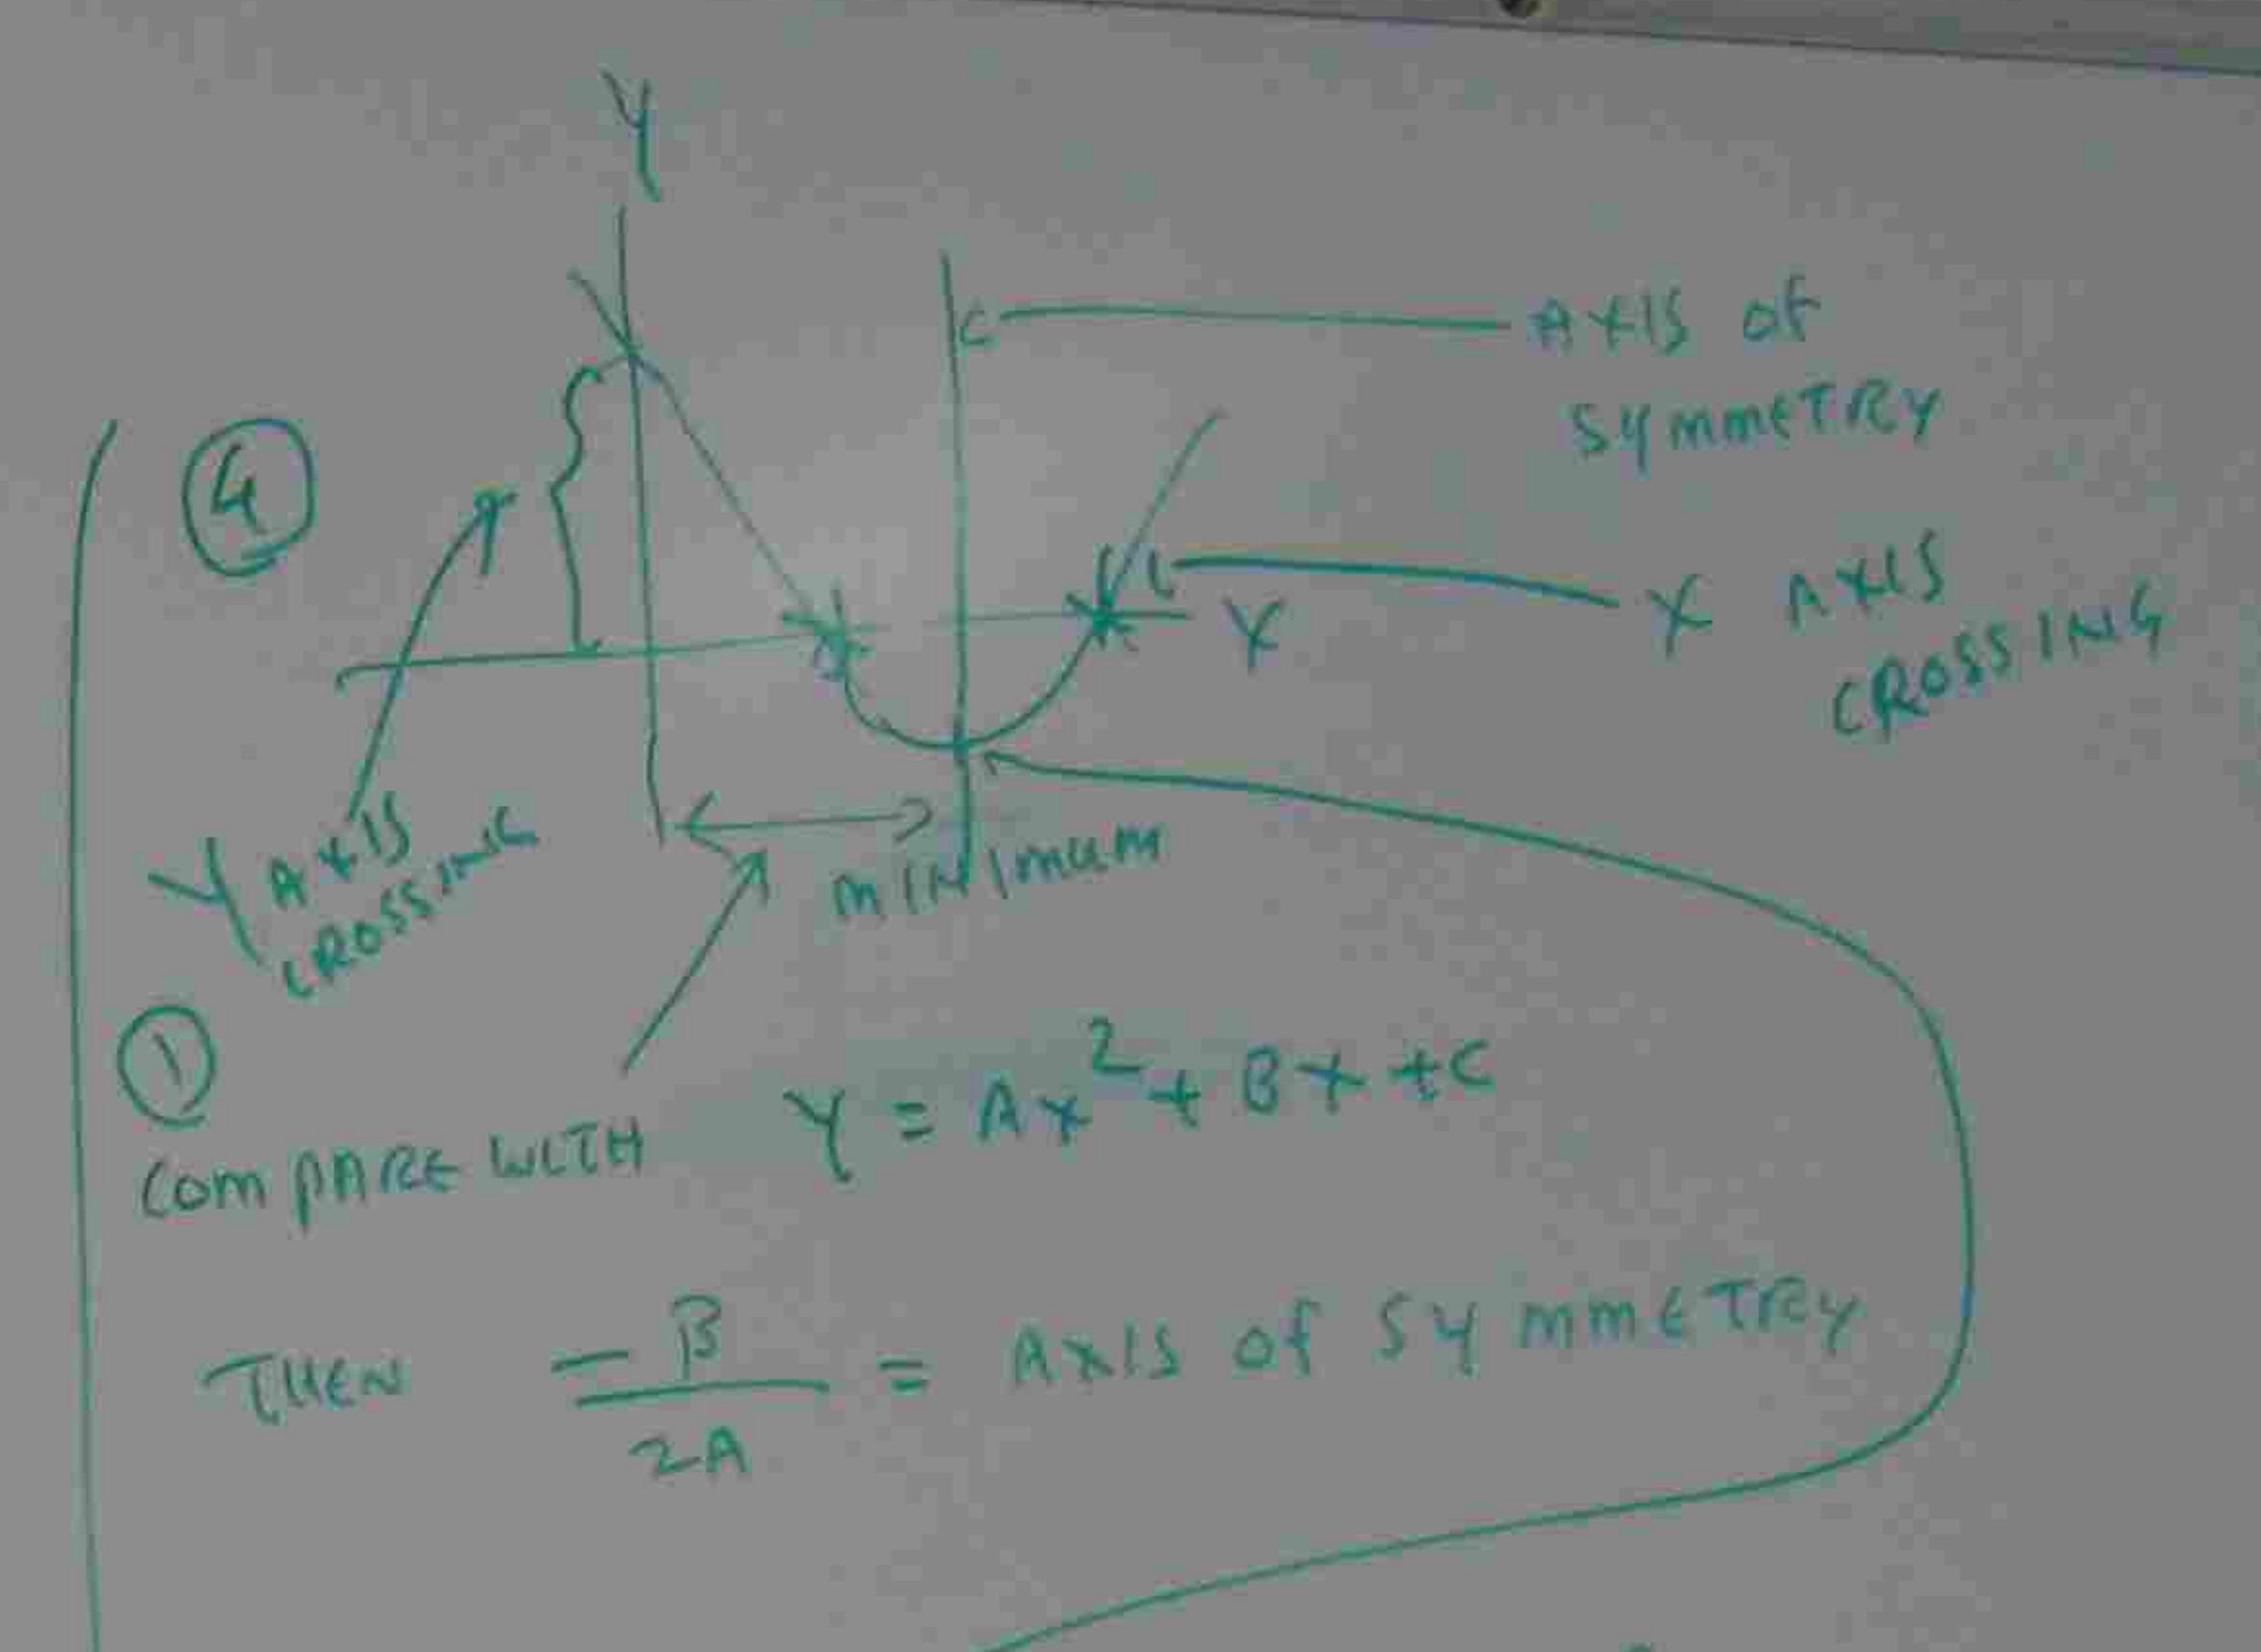 Y
AXIS OF
SYMMETRY
4
X AXIS
CROSSING
X
Y AXIS
CROSSING
MINIMUM
1
COMPARE WITH Y = Ax² + Bx + C
THEN -B/2A = AXIS OF SYMMETRY